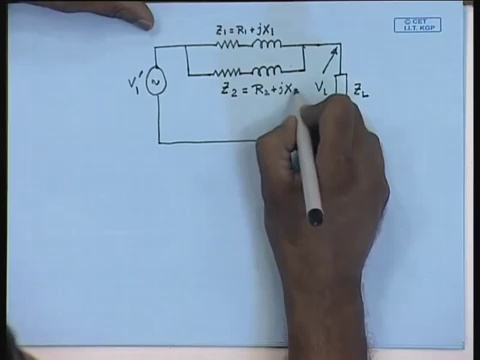 © CET
I.I.T. KGP
Z1 = R1 + jX1
V1'
Z2 = R2 + jX
VL
ZL